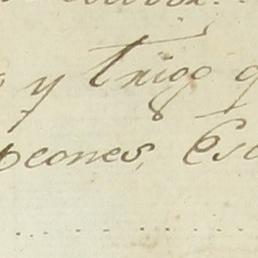 y trigo q
peones, Esc